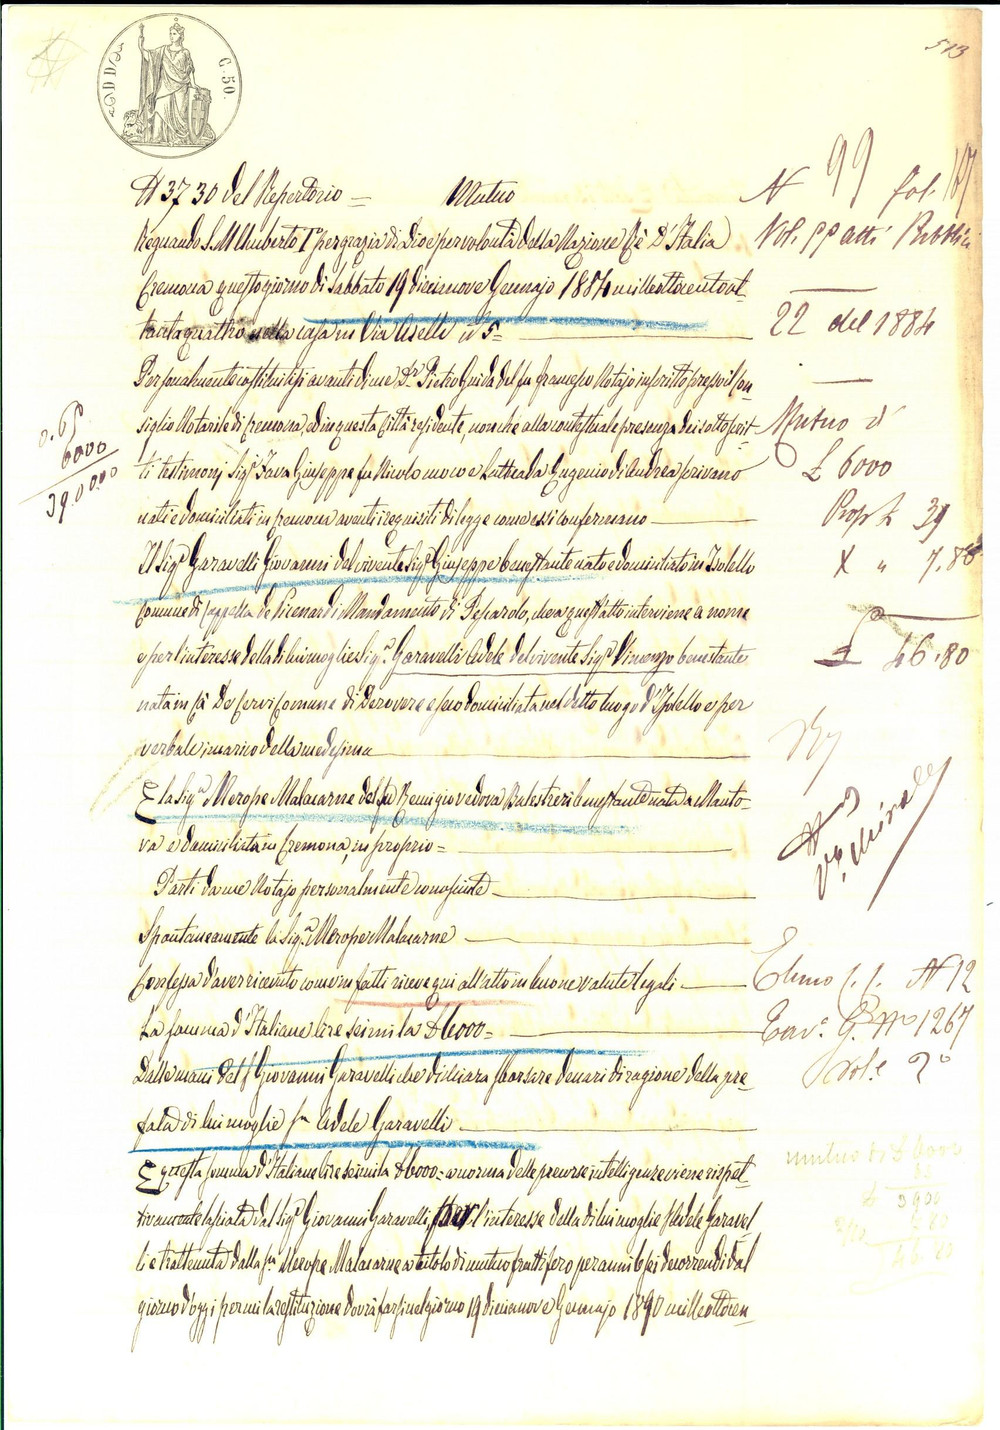 513
C. 50.
N 3730 del Repertorio = Mutuo
Regnando S. M. Umberto Iº per grazia di Dio e per volontà della Nazione Rè D'Italia
Cremona questo giorno di Sabbato 19 diecinove Gennajo 1884 milleottocentoot-
tantaquattro nella casa in Via Aselli nº 5 =
Personalmente costituitisi avanti di me Dr. Pietro Guida del fu Francesco Notajo inscritto presso il Con-
siglio Notarile di Cremona, ed in questa Città residente, nonchè alla contestuale presenza dei sottoscrit-
ti testimonj Sigi. Fava Giuseppe fu Nicolo e Lattuada Eugenio di Andrea scrivano
nati e domiciliati in Cremona aventi i requisiti di legge come essi confermano
Il Sigr. Garavelli Giovanni del vivente Sigr. Giuseppe benestante nato e domiciliato in Isolello
Comune di Cappella de Picenardi Mandamento di Pescarolo, che a quest'atto interviene a nome
e per l'interesse della di lui moglie Siga. Garavelli Adele del vivente Sigr. Vincenzo benestante
nata in Cà De Cervi Comune di Derovere e seco domiciliata nel detto luogo d'Isolello e per
verbale incarico della medesima
E la Siga. Merope Malacarne del fu Remigio vedova Balestreri benestante nata a Manto-
va e domiciliata in Cremona, in proprio =
Parti da me Notajo personalmente conosciute
Spontaneamente la Siga. Merope Malacarne
Confessa d'aver ricevuto come in fatti riceve qui all'atto in buone valute legali
La somma d'Italiane lire seimila £ 6000 =
Dalle mani del S. Giovanni Garavelli che dichiara sborsare denari di ragione della pre-
fata di lui moglie Sa. Adele Garavelli
E questa somma d'Italiane lire seimila £ 6000 = a norma delle precorse intelligenze viene rispet-
tivamente lasciata dal Sigr. Giovanni Garavelli, per l'interesse della di lui moglie Adele Garavel-
li e trattenuta dalla Sa. Merope Malacarne a titolo di mutuo fruttifero per anni 6 sei decorrendi dal
giorno d'oggi per cui la restituzione dovrà farsi nel giorno 19 diecinove Gennajo 1890 milleottocen-
N 99 fol. 167
Vol. pp atti Pubblici
22 del 1884
Mutuo di
£ 6000
Prop £ 39
X " 7.80
£ 46.80
N 12
1267
Vol. 2º
0.65
6000
39.00.00
mutuo di £ 6000
3900
46.80